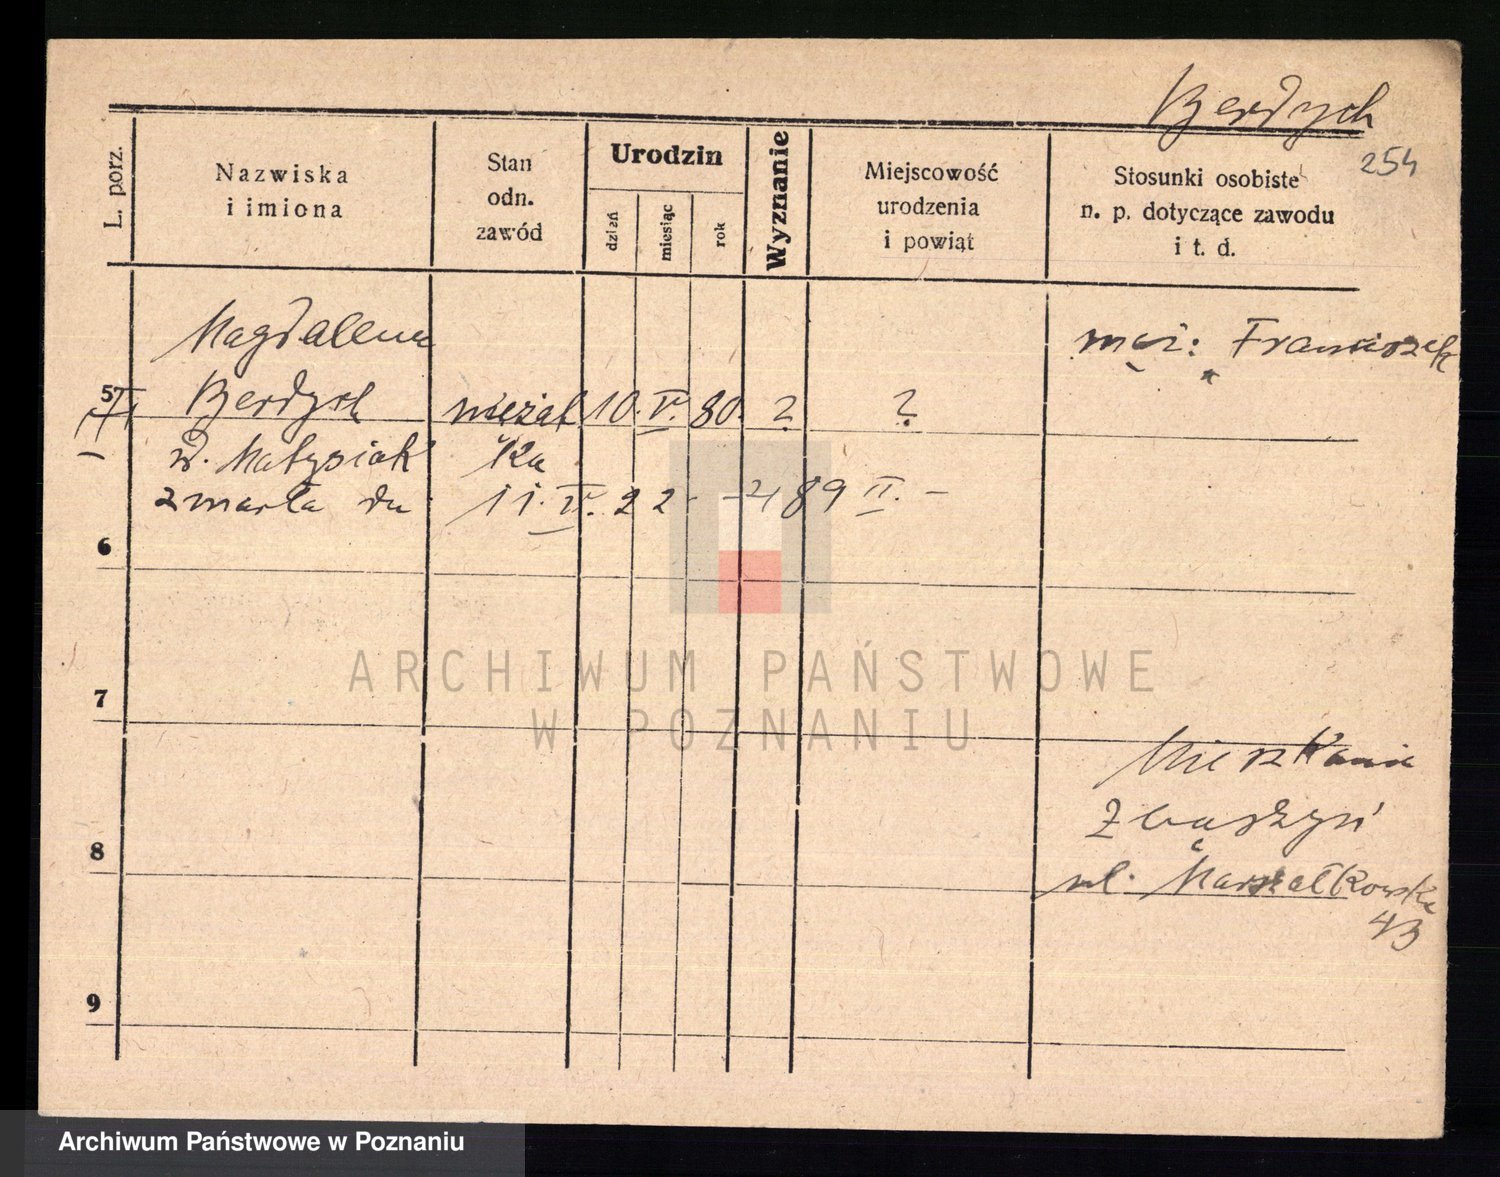 Berdych
254
L. porz.
Nazwiska
i imiona
Stan
odn.
zawód
Urodzin
dzień
miesiąc
rok
Wyznanie
Miejscowość
urodzenia
i powiąt
Stosunki osobiste
n. p. dotyczące zawodu
i t. d.
Magdalena
mąż: Franciszek
5 Berdych mężat 10. V. 80. ? ?
d. Matysiak ka
zmarła dn 11. IV. 22 - 489 II. -
6
7
ARCHIWUM PAŃSTWOWE
W POZNANIU
Mieszkanie
Zbąszyń
8
ul. Marszałkowska
43
9
Archiwum Państwowe w Poznaniu